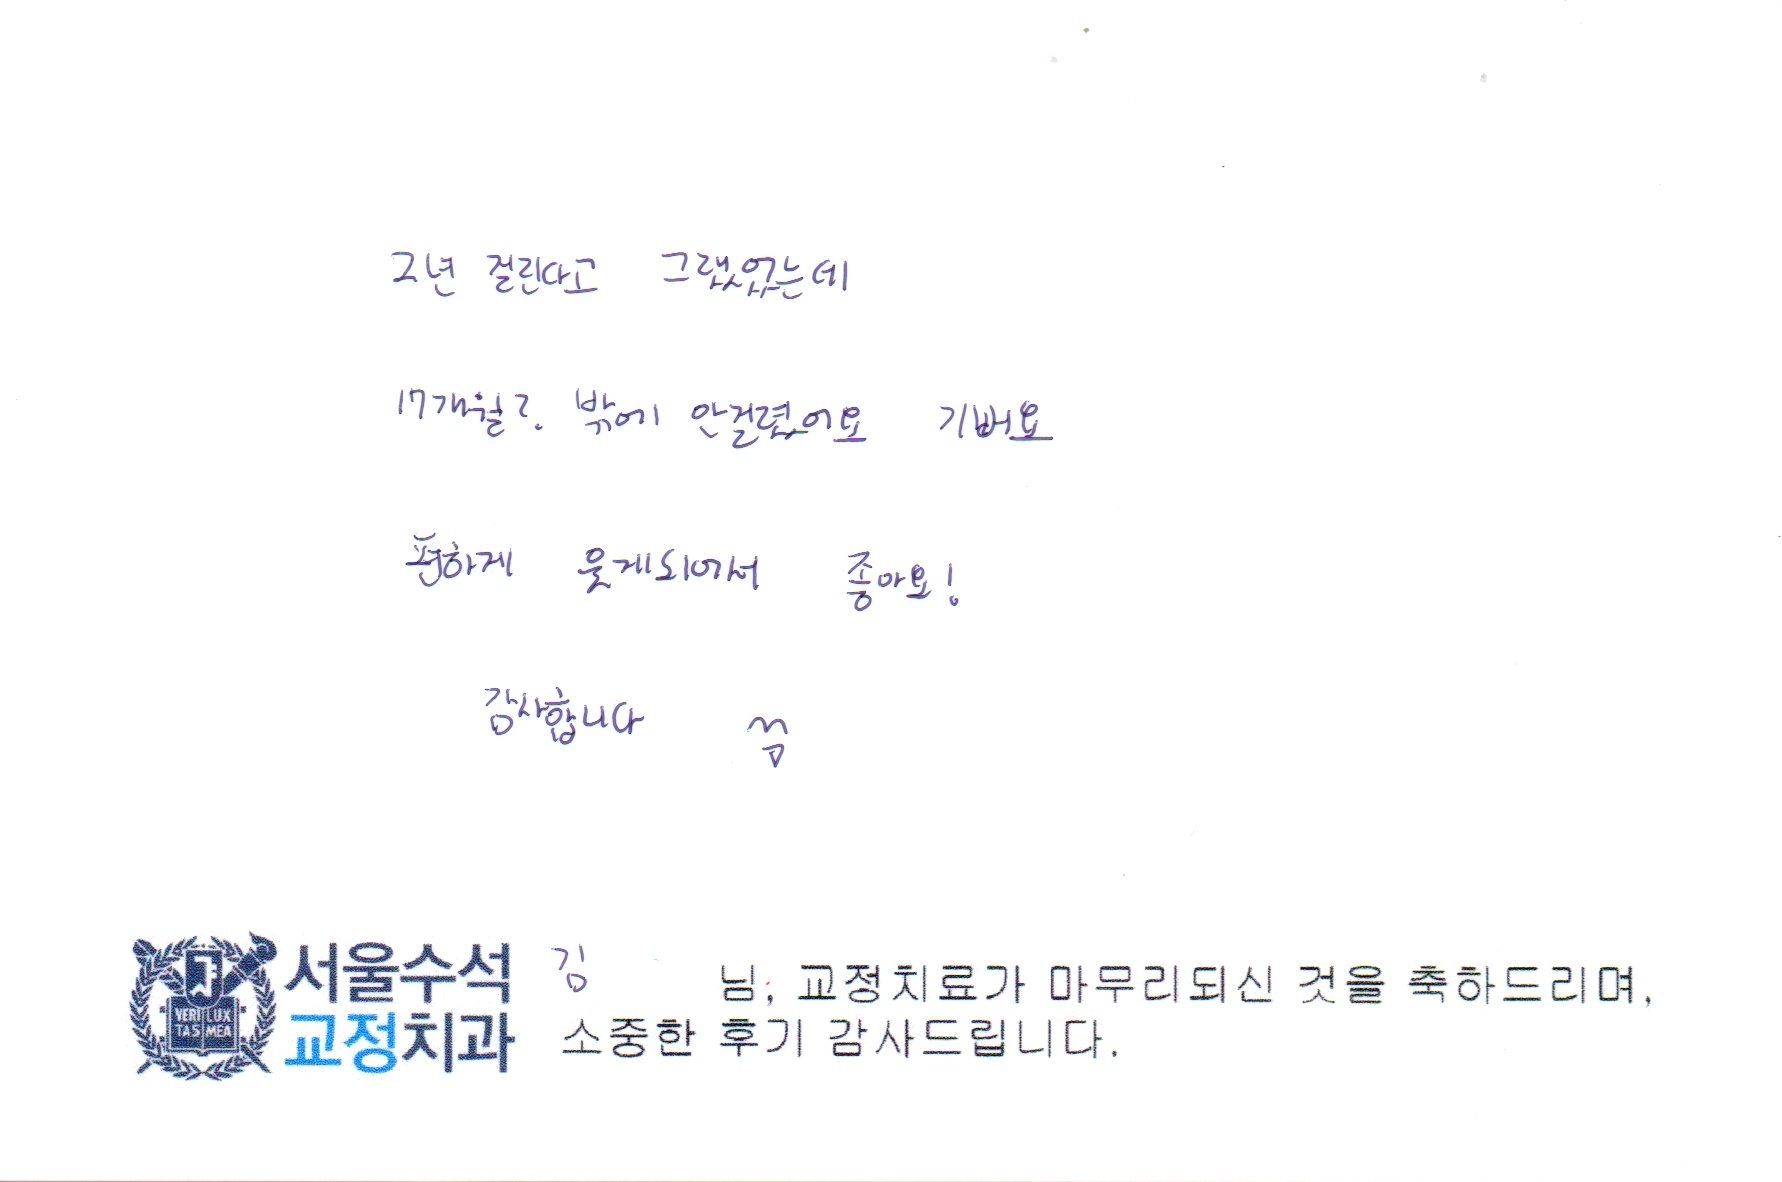 2년 걸린다고 그랬었는데
17개월?. 밖에 안걸렸어요 기뻐요
편하게 웃게되어서 좋아요!
감사합니다
VERI LUX
TAS MEA
서울수석
교정치과
김 님, 교정치료가 마무리되신 것을 축하드리며,
소중한 후기 감사드립니다.